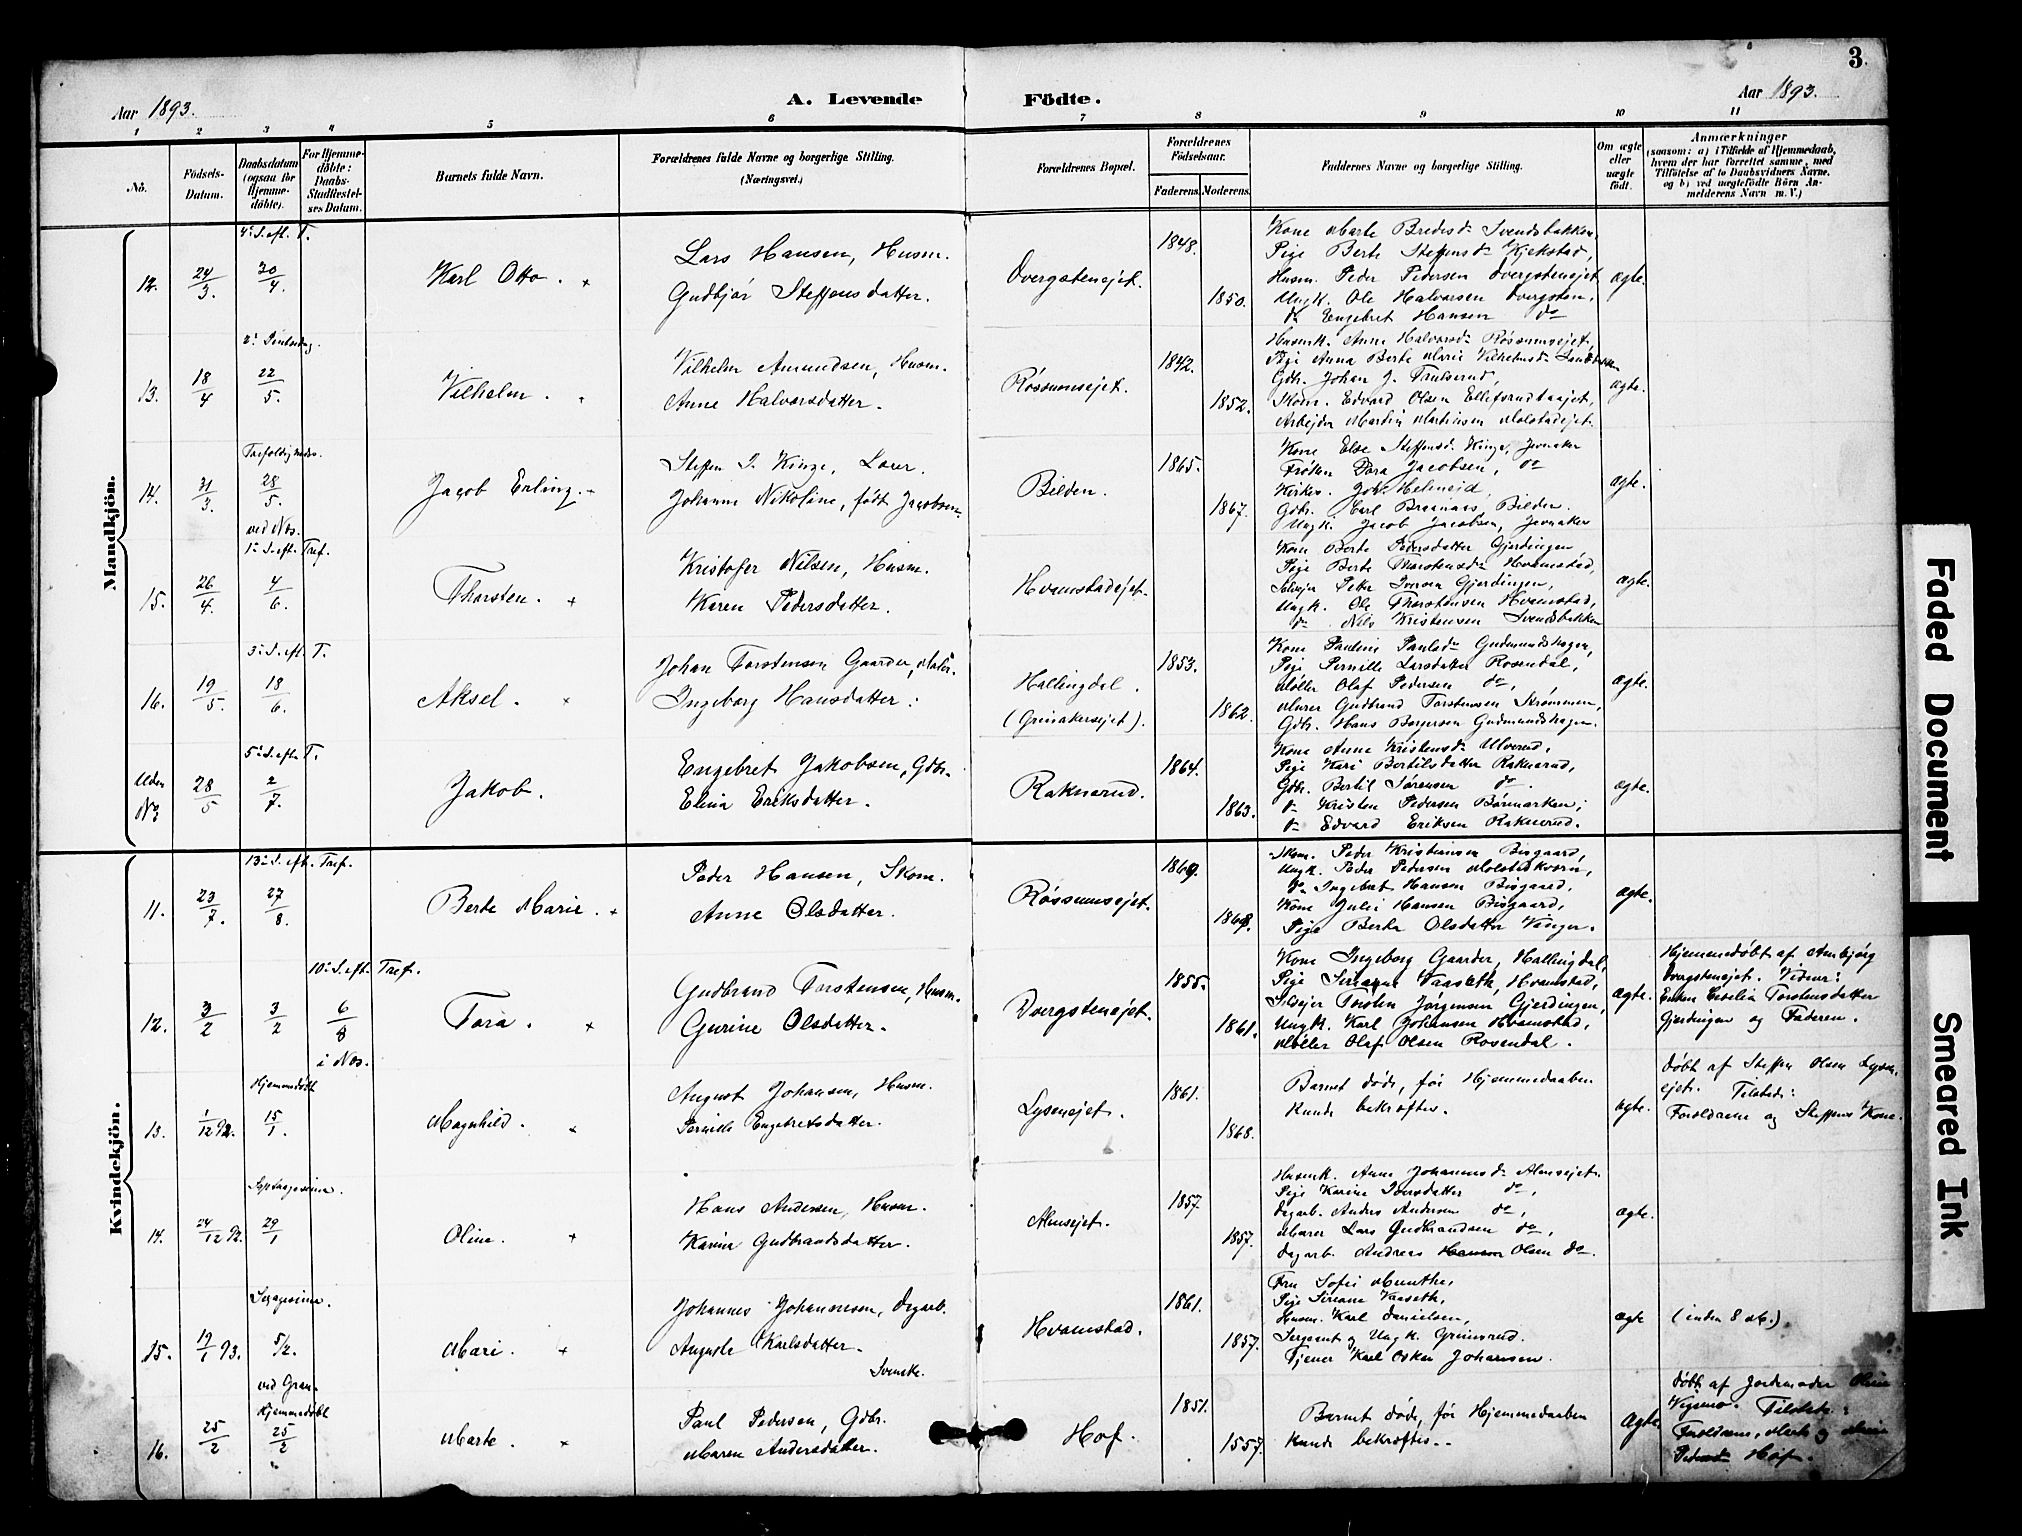 3.
Aar 1893.
A. Levende Födte.
Aar 1893.
1 2 3 4 5 6 7 8 9 10 11
No.
Födsels-Datum.
Daabsdatum (ogsaa for Hjemmedöbte).
For Hjemmedöbte: Daabs-Stadfæstelses Datum.
Barnets fulde Navn.
Forældrenes fulde Navne og borgerlige Stilling.
(Næringsvei.)
Forældrenes Bopæl.
Forældrenes Födselsaar.
Faderens. Moderens.
Faddernes Navne og borgerlige Stilling.
Om ægte eller uægte födt.
Anmærkninger
(saasom: a) i Tilfælde af Hjemmedaab, hvem der har forrettet samme, med Tilföielse af to Daabsvidners Navne, og b) ved uægtefödte Börn Anmelderens Navn m. V.)
Mandkjön.
4de S. eft. T.
12. 24/3. 30/4. Karl Otto.
Lars Hansen, Husm.
Gudbjør Steffensdatter.
Dvergstenejet.
1848.
1850.
Kone Marte Bredesdr Svendsbakken,
Pige Berte Steffensdr Kjekstad,
Husm. Peder Pedersen Dvergstenejet
Ungk. Ole Halvorsen Dvergsten,
do Engebret Hansen do
ægte.
2. Pintsedag.
13. 18/4 22/5. Vilhelm.
Vilhelm Amundsen, Husm.
Anne Halvorsdatter.
Røssumsejet.
1842.
1852.
Husmk. Anne Halvorsdr Røssumsejet,
Pige Anna Berte Marie Vilhelmsdr
Gdbr. Johan J. Trulserud,
Skom. Edvard Olsen
Arbejder Martin Martinsen Molstadejet.
ægte.
Trefoldigheds.
14. 31/3. 28/5. Jacob Erling.
ved Nes.
Steffen J. Kinge, Lærer.
Johanne Nikoline, født Jacobsen.
Bilden.
1865.
1867.
Kone Else Steffensd. Kinge, Jevnaker
Frøken Dora Jacobsen, do
Kirkes. Joh. Helmeid,
Gdbr. Carl Braanaas, Bilden.
Ungk. Jacob Jacobsen, Jevnaker
ægte.
1ste S. eft. Tref.
15. 26/4. 4/6. Thorsten.
Kristofer Nilsen, Husm.
Karen Pedersdatter.
Hvamstadejet.
Kone Berte Pedersdatter Gjerdingen,
Pige Berte Thorstensdr Hvamstad,
Selvejer Peter Iversen Gjerdingen,
Ungk. Ole Thorstensen Hvamstad,
do Nils Kristensen Svendsbakken
ægte.
3de S. eft. T.
16. 19/5. 18/6. Aksel.
Johan Torstensen Gaarder, Maler.
Ingeborg Hansdatter.
Hallingdal.
(Grinakersejet).
1853.
1862.
Kone Pauline Paulsdr Gudmundshagen,
Pige Pernille Larsdatter Rosendal,
Møller Olaf Pedersen do,
Murer Gudbrand Torstensen Strømmen,
Gdbr. Hans Borgersen Gudmundshagen.
ægte.
5te S. eft. T.
Uden No
28/5 2/7. Jakob.
Engebret Jakobsen, Gdbr.
Elina Eriksdatter.
Raknerud.
1864.
1863.
Kone Anne Kristensdr Ulverud,
Pige Kari Bertilsdatter Raknerud,
Gdbr. Bertil Sørensen do.
do Kristen Pedersen Børmarken,
do Edvard Eriksen Raknerud.
ægte.
Kvindekjön.
13de S. eft. Tref.
11. 23/7. 27/8. Berte Marie.
Peder Hansen, Skom.
Anne Olsdatter.
Røssumsejet.
1869.
1869.
Skom. Peder Kristiansen Bisgaard,
Ungk. Peder Pedersen Molstadkvern,
do Ingebret Hansen Bisgaard,
Kone Julie Hansen Bisgaard,
Pige Berte Olsdatter Vinger.
ægte.
10de S. eft. Tref.
12. 3/2 3/2 6/8 Tora.
i Nes.
Gudbrand Torstensen, Husm.
Gurine Olsdatter.
Dvergstenejet.
1855.
1861.
Kone Ingeborg Gaarder, Hallingdal,
Pige Siriane Vaaseth, Hvamstad,
Selvejer Torsten Jørgensen Gjerdingen,
Ungk. Karl Johansen Hvamstad,
Møller Olaf Olsen Rosendal.
ægte.
Hjemmedøbt af Anbjørg
Dvergstenejet. Vidner:
Enken Cecelia Torstensdatter
Gjerdingen og Faderen.
Hjemmedøbt
13. 1/12 92. 15/1. Magnhild.
August Johansen, Husm.
Pernille Engebretsdatter.
Lysenejet.
1861.
1868.
Barnet døde, før Hjemmedaaben
kunde bekræftes.
ægte.
Døbt af Steffen Olsen Lysen-
ejet. Tilstede:
Forældrene og Steffens Kone.
Septuagesima.
14. 24/12 92. 29/1 Oline.
Hans Andersen, Husm.
Karine Gudbrandsdatter.
Almsejet.
1857.
1857.
Husmk. Anne Johannesdr Almsejet.
Pige Karine Iversdatter do,
Dagarb. Anders Andersen do,
Murer Lars Gudbrandsen do,
Dagarb. Andreas Hansen Olsen do.
ægte.
Sexagesima.
15. 19/1 93. 5/2. Mari.
Johannes Johannesen, Dagarb.
Auguste Karlsdatter.
Svenske.
Hvamstad.
1861.
1857.
Fru Sofie Munthe,
Pige Siriane Vaaseth,
Husm. Karl Danielsen,
Sergeant og Ungk. Grimsrud.
Tjener Karl Oskar Johansen.
ægte
(inden 8 M.).
ved Gran.
Hjemmedøbt
16. 25/2 25/2 Marte.
Paul Pedersen, Gdbr.
Maren Andersdatter.
Hof.
1851.
1557.
Barnet døde, før Hjemmedaaben
kunde bekræftes.
ægte.
Døbt af Jordemoder Oline
Tilstede:
Forældrene, Marte og
Hof.
Faded Document
Smeared Ink